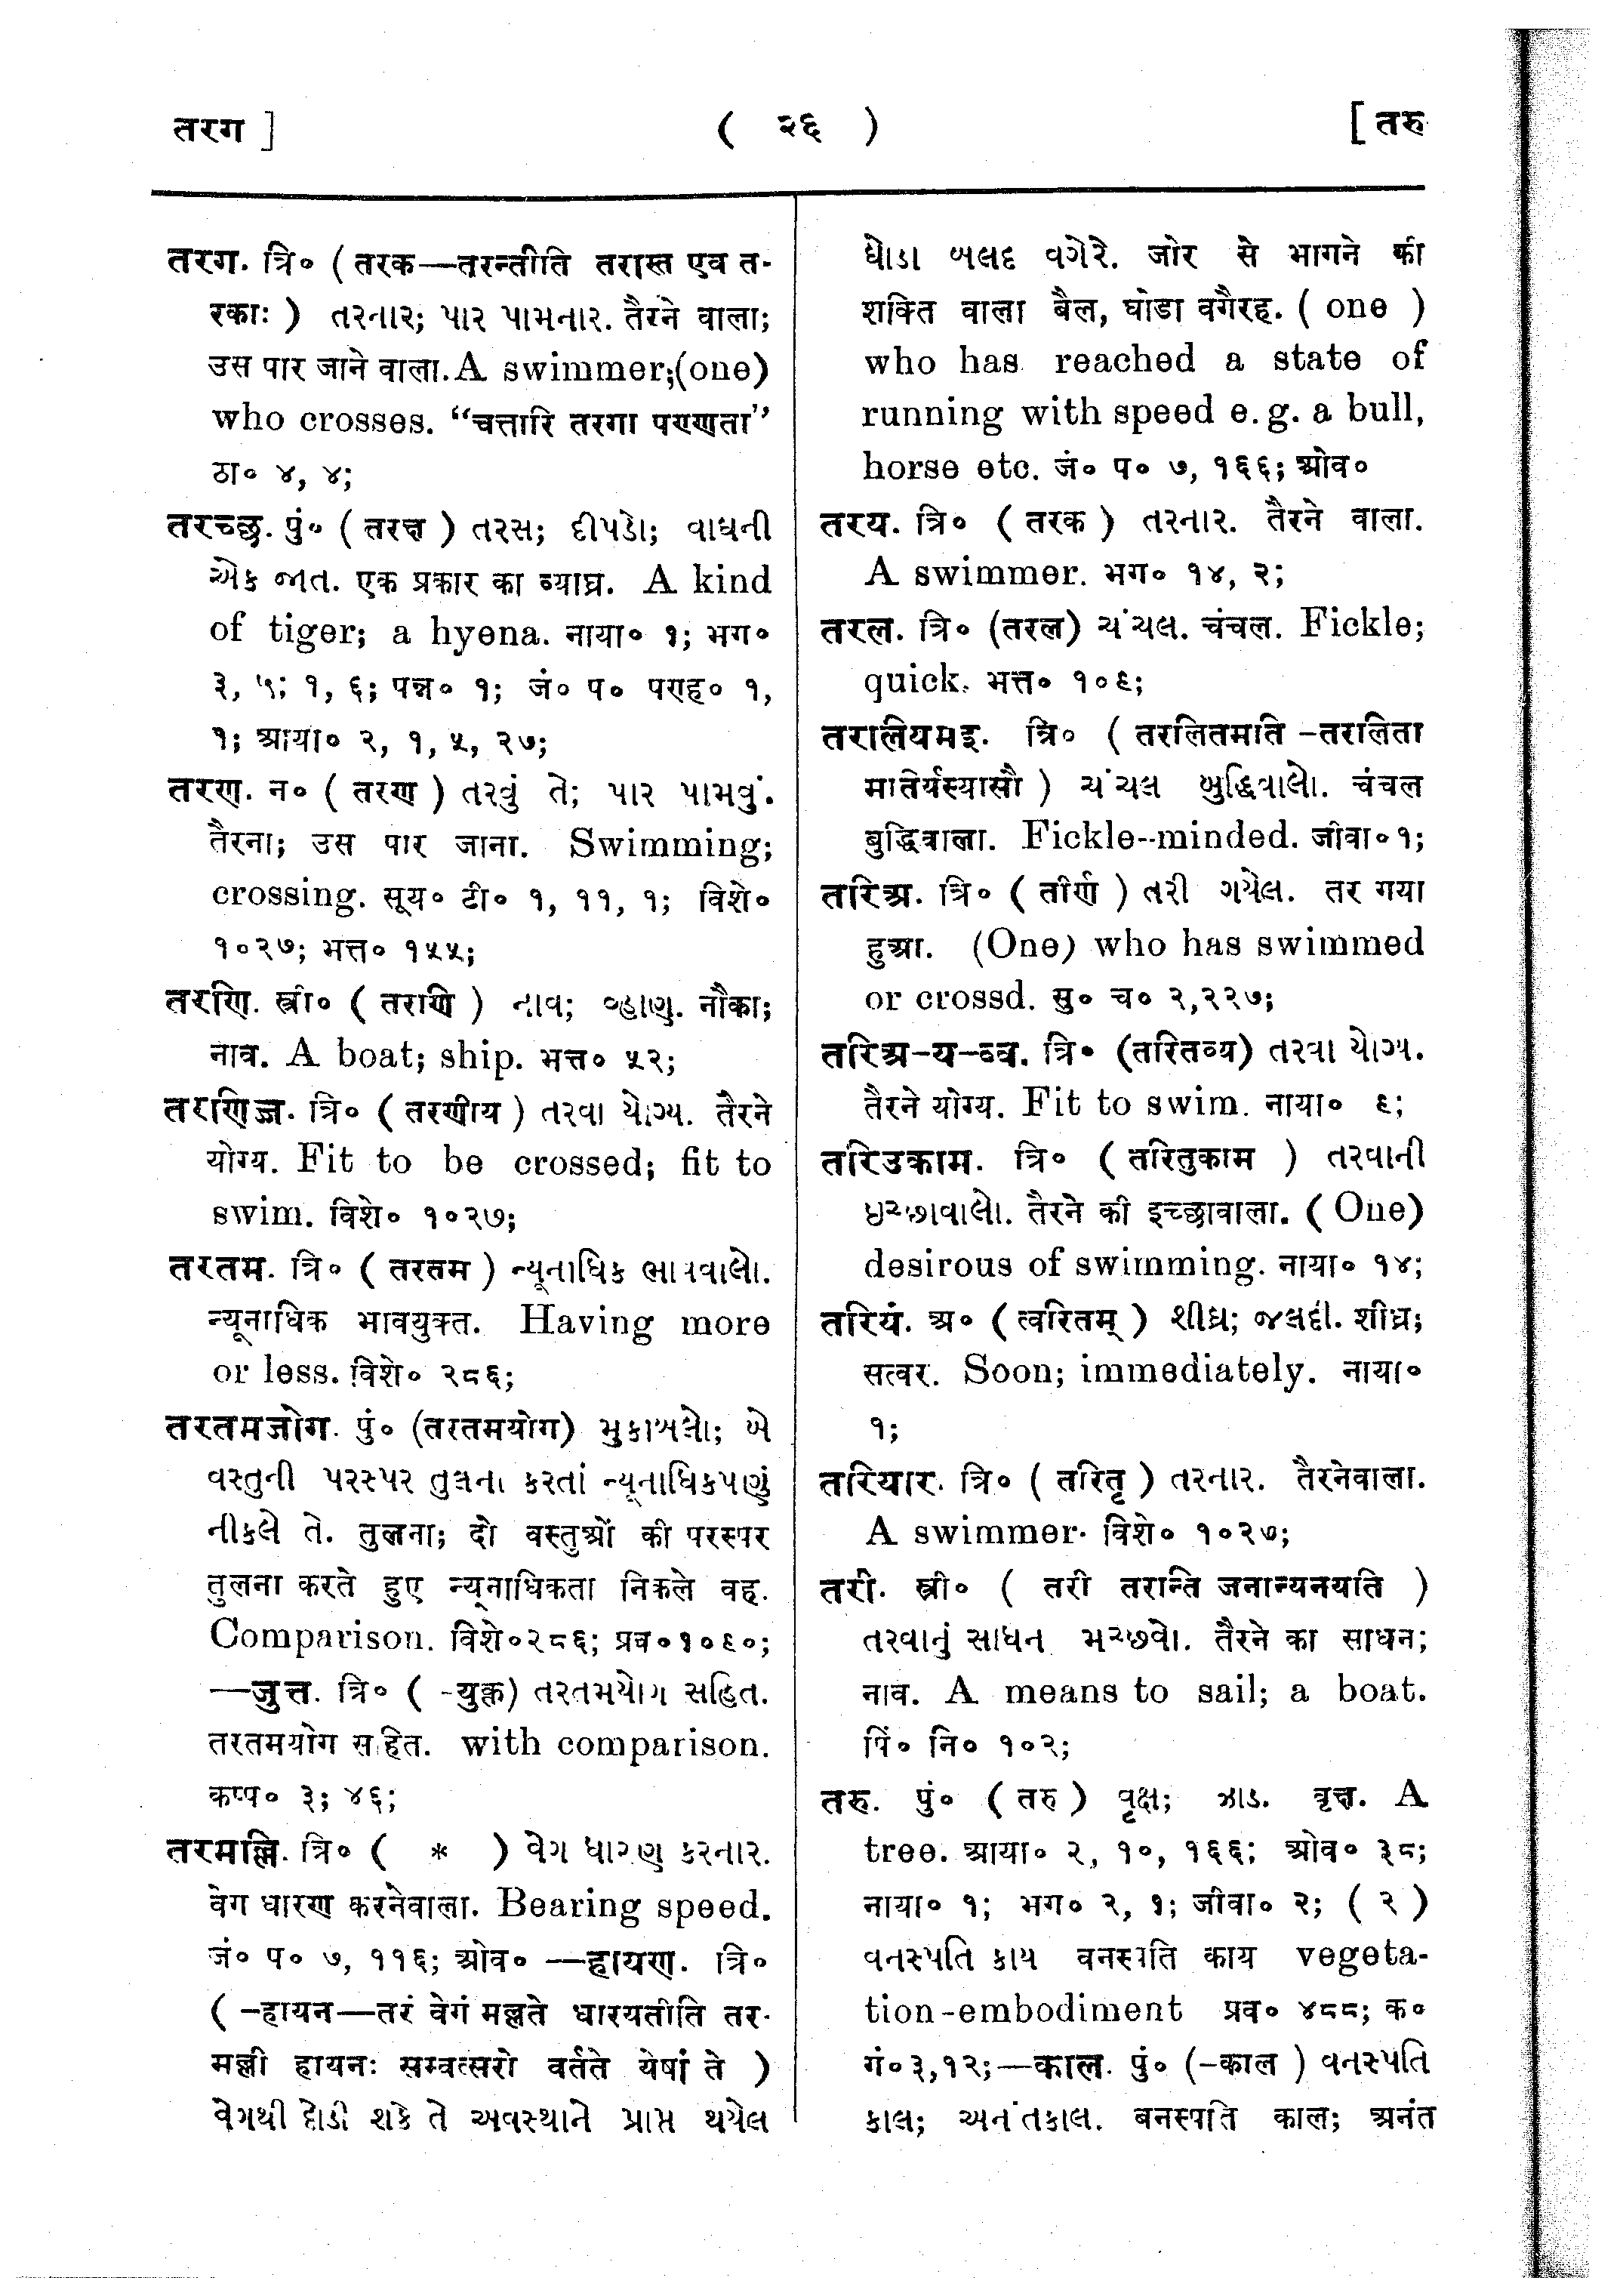 तरग ]
( २६ )
[ तरु
तरग. त्रि० ( तरक—तरन्तीति तरास्त एव त-
रकाः ) તરનાર; પાર પામનાર. तैरने वाला;
उस पार जाने वाला. A swimmer;(one)
who crosses. “चत्तारि तरगा पण्णता”
ठा० ४, ४;
तरच्छ. पुं० ( तरक्ष ) તરસ; દીપડો; વાઘની
એક જાત. एक प्रकार का व्याघ्र. A kind
of tiger; a hyena. नाया० १; भग०
३, ५; १, ६; पन्न० १; जं० प० पण्ह० १,
१; आया० २, १, ५, २७;
तरण. न० ( तरण ) તરવું તે; પાર પામવું.
तैरना; उस पार जाना. Swimming;
crossing. सूय० टी० १, ११, १; विशे०
१०२७; भत्त० १५५;
तरणि. स्त्री० ( तरणि ) નાવ; વ્હાણ. नौका;
नाव. A boat; ship. भत्त० ५२;
तरणिज्ज. त्रि० ( तरणीय ) તરવા યોગ્ય. तैरने
योग्य. Fit to be crossed; fit to
swim. विशे० १०२७;
तरतम. त्रि० ( तरतम ) ન્યૂનાધિક ભાવવાલો.
न्यूनाधिक भावयुक्त. Having more
or less. विशे० २८६;
तरतमजोग. पुं० (तरतमयोग) મુકાબલો; બે
વસ્તુની પરસ્પર તુલના કરતાં ન્યૂનાધિકપણું
નીકલે તે. तुलना; दो वस्तुओं की परस्पर
तुलना करते हुए न्यूनाधिकता निकले वह.
Comparison. विशे०२८६; प्रव०१०६०;
—जुत्त. त्रि० ( -युक्त) તરતમયોગ સહિત.
तरतमयोग सहित. with comparison.
कप्प० ३; ४६;
तरमल्लि. त्रि० ( * ) વેગ ધારણ કરનાર.
वेग धारण करनेवाला. Bearing speed.
जं० प० ७, ११६; ओव० —हायण. त्रि०
( -हायन—तरं वेगं मल्लते धारयतीति तर-
मल्ली हायनः सम्वत्सरो वर्तते येषां ते )
વેગથી દોડી શકે તે અવસ્થાને પ્રાપ્ત થયેલ
ઘોડા બલદ વગેરે. जोर से भागने की
शक्ति वाला बैल, घोडा वगैरह. ( one )
who has reached a state of
running with speed e. g. a bull,
horse etc. जं० प० ७, १६६; ओव०
तरय. त्रि० ( तरक ) તરનાર. तैरने वाला.
A swimmer. भग० १४, २;
तरल. त्रि० (तरल) ચંચલ. चंचल. Fickle;
quick. भत्त० १०६;
तरलियमइ. त्रि० ( तरलितमति -तरलिता
मतिर्यस्यासौ ) ચંચલ બુદ્ધિવાલો. चंचल
बुद्धिवाला. Fickle--minded. जीवा०१;
तरिअ. त्रि० ( तीर्ण ) તરી ગયેલ. तर गया
हुआ. (One) who has swimmed
or crossd. सु० च० २,२२७;
तरिअ-य-व्व. त्रि० (तरितव्य) તરવા યોગ્ય.
तैरने योग्य. Fit to swim. नाया० ६;
तरिउकाम. त्रि० ( तरितुकाम ) તરવાની
ઇચ્છાવાલો. तैरने की इच्छावाला. ( One)
desirous of swimming. नाया० १४;
तरियं. अ० ( त्वरितम् ) શીઘ્ર; જલદી. शीघ्र;
सत्वर. Soon; immediately. नाया०
१;
तरियार. त्रि० ( तरितृ ) તરનાર. तैरनेवाला.
A swimmer. विशे० १०२७;
तरी. स्त्री० ( तरी तरन्ति जनान्यनयति )
તરવાનું સાધન મછવો. तैरने का साधन;
नाव. A means to sail; a boat.
पिं० नि० १०२;
तरु. पुं० ( तरु ) વૃક્ષ; ઝાડ. वृक्ष. A
tree. आया० २, १०, १६६; ओव० ३८;
नाया० १; भग० २, १; जीवा० २; ( २ )
વનસ્પતિ કાય वनस्पति काय vegeta-
tion-embodiment प्रव० ४८८; क०
गं०३,१२;—काल. पुं० (-काल ) વનસ્પતિ
કાલ; અનંતકાલ. बनस्पति काल; अनंत